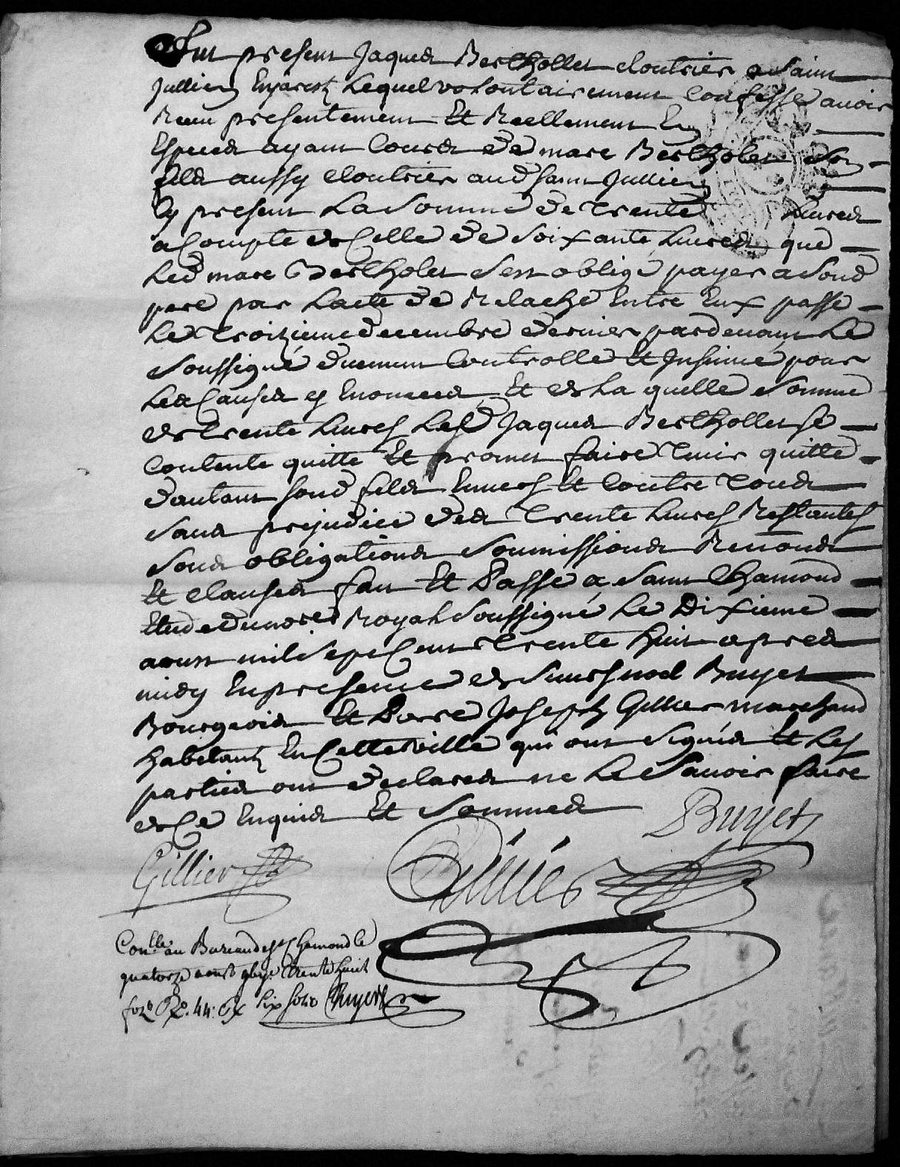 Fut present Jaques Berthollet cloutrier a Saint
Jullien Enjarest Lequel volontairement Confesse avoir
Receu presentement Et Reellement En
Especes ayant Cours de marc Bertholet Son
fils aussy cloutrier aud Saint Jullien
Cy present La Somme de Trente Livres
a Compte de Celle de Soixante Livres que
Led marc Bertholet sest obligé payer a Sond
pere par Lacte de Relache Entre Eux passé
Le Troizieme decembre dernier pardevant Le
Soussigné duement Controllé Et Insinué pour
Les Causes y Enoncees Et de La quelle Somme
de Trente Livres Led Jaques Berthollet se
Contente quitte Et promet faire Tenir quitte
dautant Sond fils Envers Et Contre Tous
Sans prejudice des Trente Livres Restantes
Sous obligations Soumissions Renons
Et Clauses fait Et Passé a Saint Chamond
Etude du not Royal Soussigné Le Dixieme
aoust mil sept Cent Trente huit apres
midy En presence de Buyet
Bourgeois Et Joseph Gillier marchand
habitants En Cette ville qui ont Signés Et Les
parties ont declares ne Le Savoir faire
de Ce Enquis Et Sommes
Buyet
Gillier
Con.lle au Bureau de St Chamond le
quatorze aoust Trente huit
fo 44 six sols Buyet